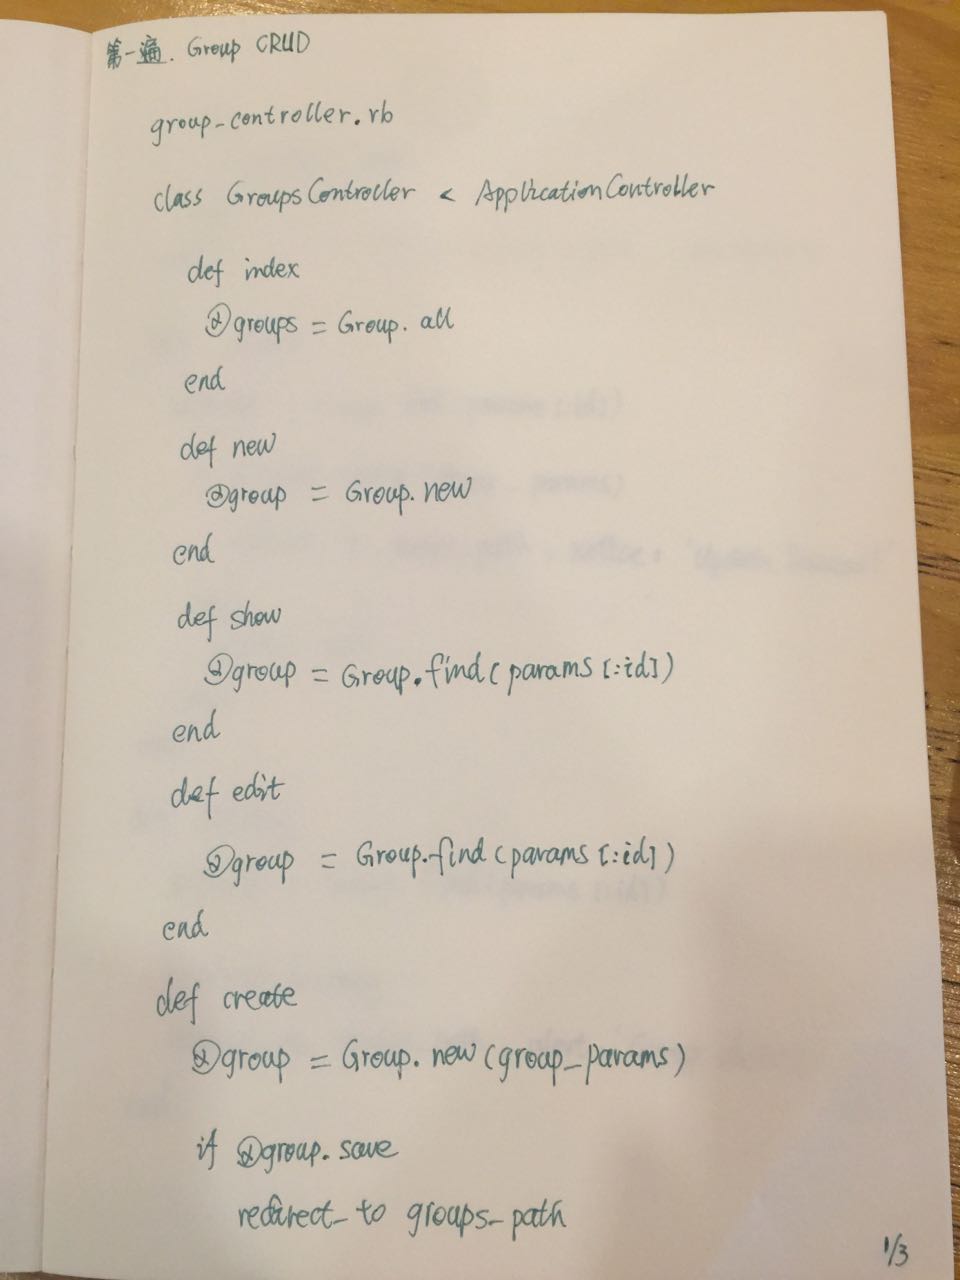 第一遍. Group CRUD
group_controller.rb
class GroupsController < ApplicationController
def index
@groups = Group.all
end
def new
@group = Group.new
end
def show
@group = Group.find(params[:id])
end
def edit
@group = Group.find(params[:id])
end
def create
@group = Group.new(group_params)
if @group.save
redirect_to groups_path
1/3